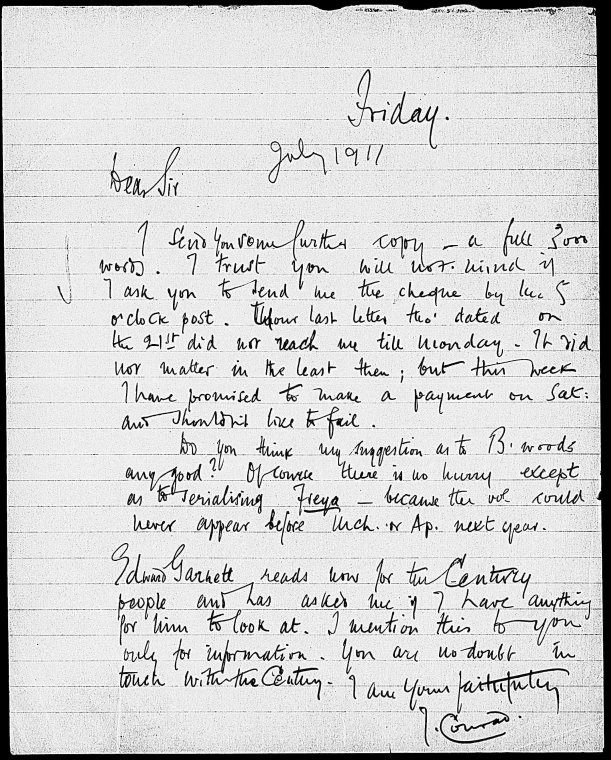 Friday.
July 1911
Dear Sir
I send you some further copy – a full 3000
words. I trust you will not mind if
I ask you to send me the cheque by the 5
o'clock post. Your last letter tho' dated on
the 21st did not reach me till Monday – It did
not matter in the least then; but this week
I have promised to make a payment on Sat:
and shouldn't like to fail.
Do you think my suggestion as to B. woods
any good? Of course there is no hurry except
as to serialising Freya – because the vol could
never appear before Mch. or Ap. next year.
Edward Garnett reads now for the Century
people and has asked me if I have anything
for him to look at. I mention this to you
only for information. You are no doubt in
touch with the Century. I am yours faithfully
J. Conrad.